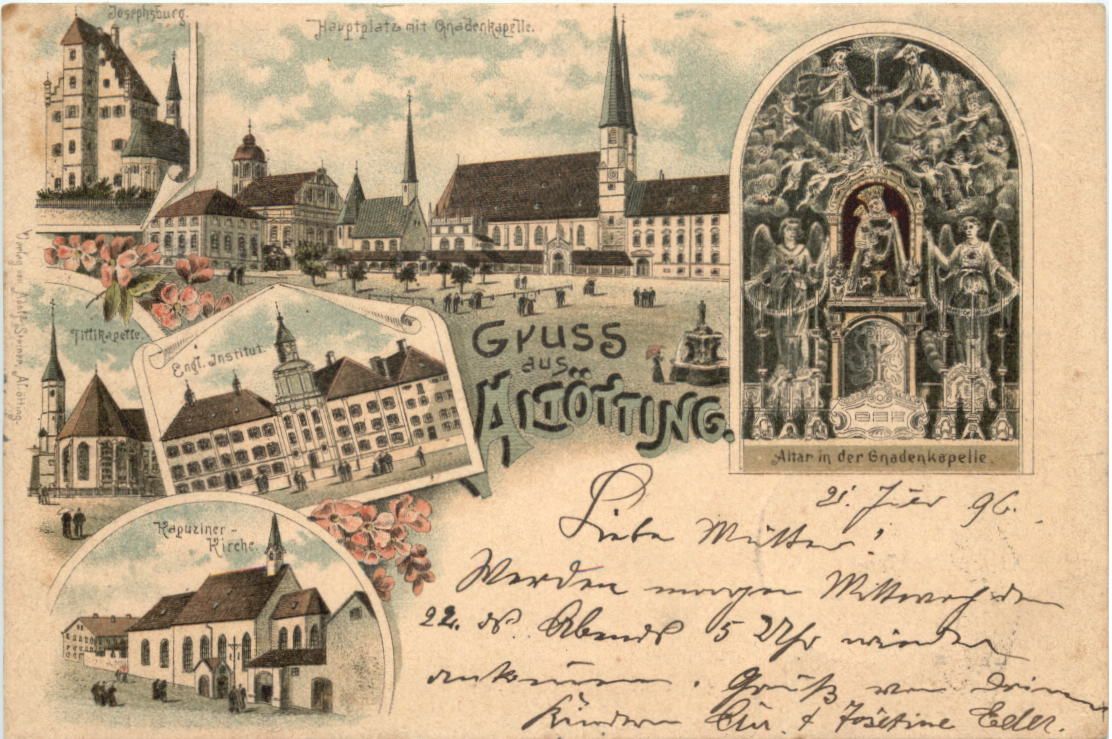 Josephsburg.
Hauptplatz mit Gnadenkapelle.
Verlag von Adolf Steiner, Altötting.
Tillikapelle.
Engl. Institut.
Gruss
aus
Altötting.
Altar in der Gnadenkapelle.
Kapuziner-
Kirche.
21. 96.
Liebe Mutter!
Werden morgen Mittwoch den
22. ds Abends 5 Uhr wieder
ankommen. Gruß von Deinen
Kindern & Josefine Eder.